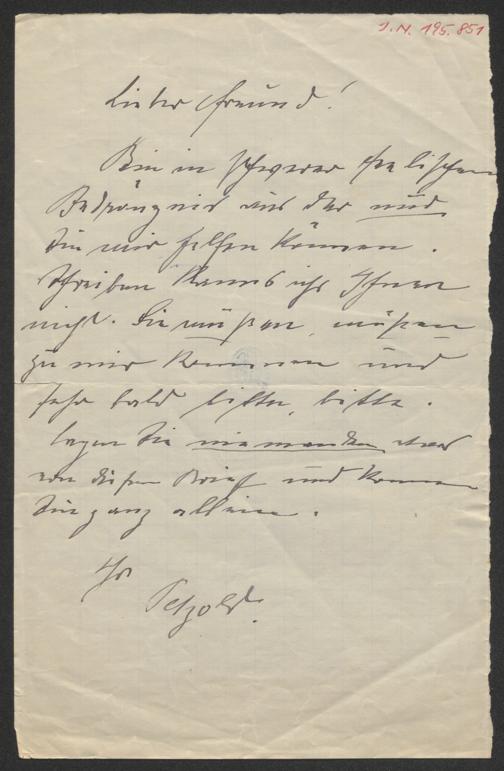 J. N. 195.851
Lieber Freund!
Bin in schwerer seelischen
Bedrängnis aus der nur
Sie mir helfen können.
Schreiben kann's ich Ihnen
nicht. Sie müßen, müßen
zu mir kommen und
sehr bald bitte, bitte.
Sagen Sie niemanden etwas
von diesen Brief und kommen
Sie ganz allein.
Ihr
Petzold.